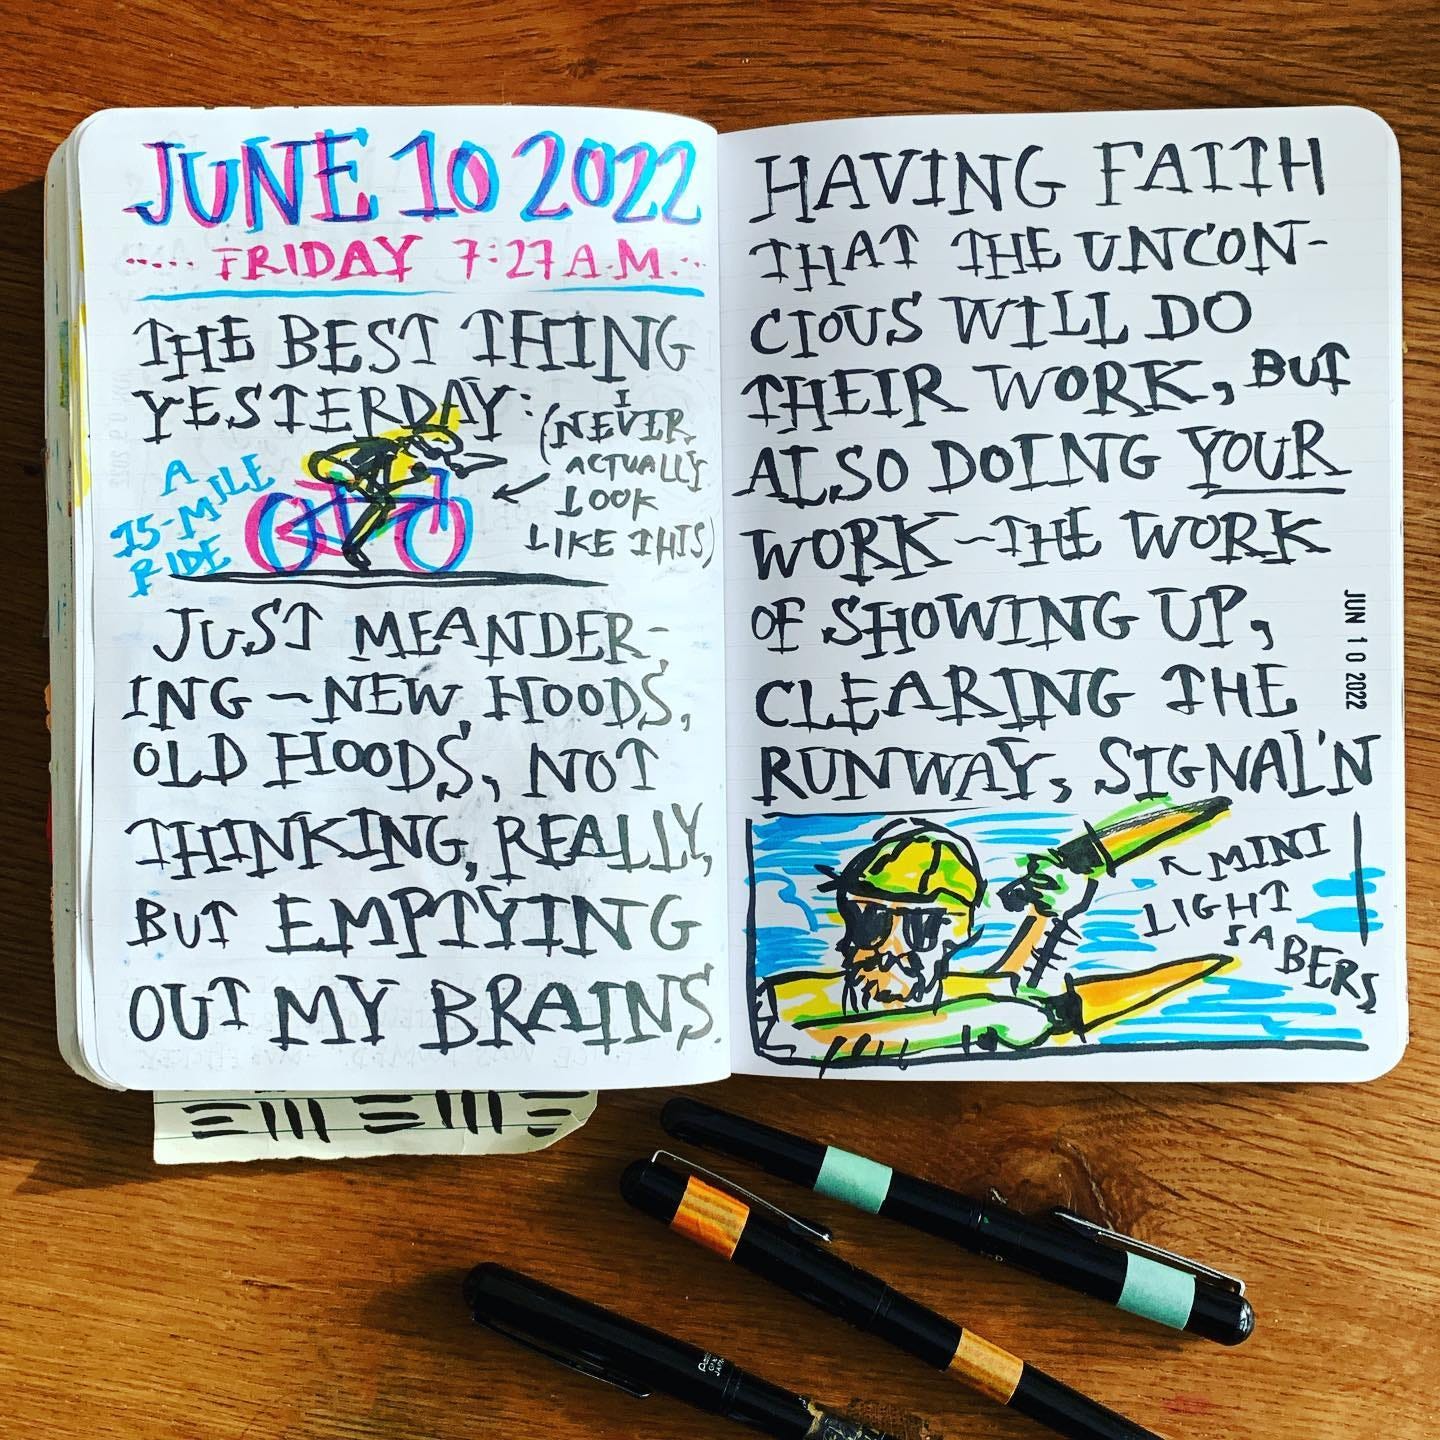 JUNE 10 2022
FRIDAY 7:27 A.M.
THE BEST THING
YESTERDAY:
A
15-MILE
RIDE
(I
NEVER
ACTUALLY
LOOK
LIKE THIS)
JUST MEANDER-
ING ~ NEW HOODS,
OLD HOODS, NOT
THINKING, REALLY,
BUT EMPTYING
OUT MY BRAINS.
HAVING FAITH
THAT THE UNCON-
CIOUS WILL DO
THEIR WORK, BUT
ALSO DOING YOUR
WORK ~ THE WORK
OF SHOWING UP,
CLEARING THE
RUNWAY, SIGNAL'N
MINI
LIGHT
SABERS
JUN 10 2022